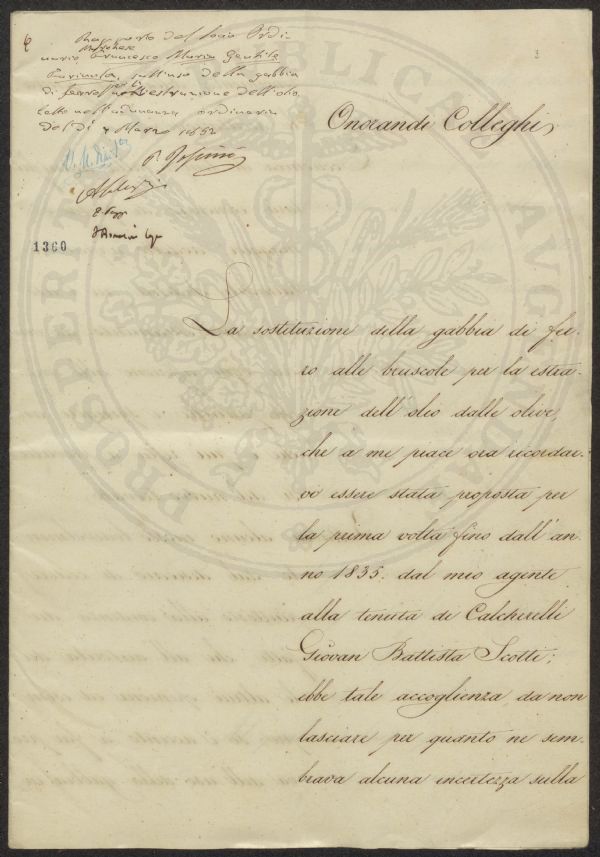 Rapporto del Socio Ordi
nario Marchese Francesco Maria Gentile
Farinola, sull'uso della gabbia
di ferro per la estrazione dell'olio
letto nell'adunanza ordinaria
del dì 7 Marzo 1852
1360
3
Onorandi Colleghi,
La sostituzione della gabbia di fer-
ro alle bruscole per la estra-
zione dell'olio dalle olive,
che a me piace ora ricordar-
vi essere stata proposta per
la prima volta fino dall'an-
no 1835. dal mio agente
alla tenuta di Calcherelli
Giovan Battista Scotti;
ebbe tale accoglienza da non
lasciare per quanto ne sem-
brava alcuna incertezza sulla
PROSPERITATI PUBLICAE AUGENDAE